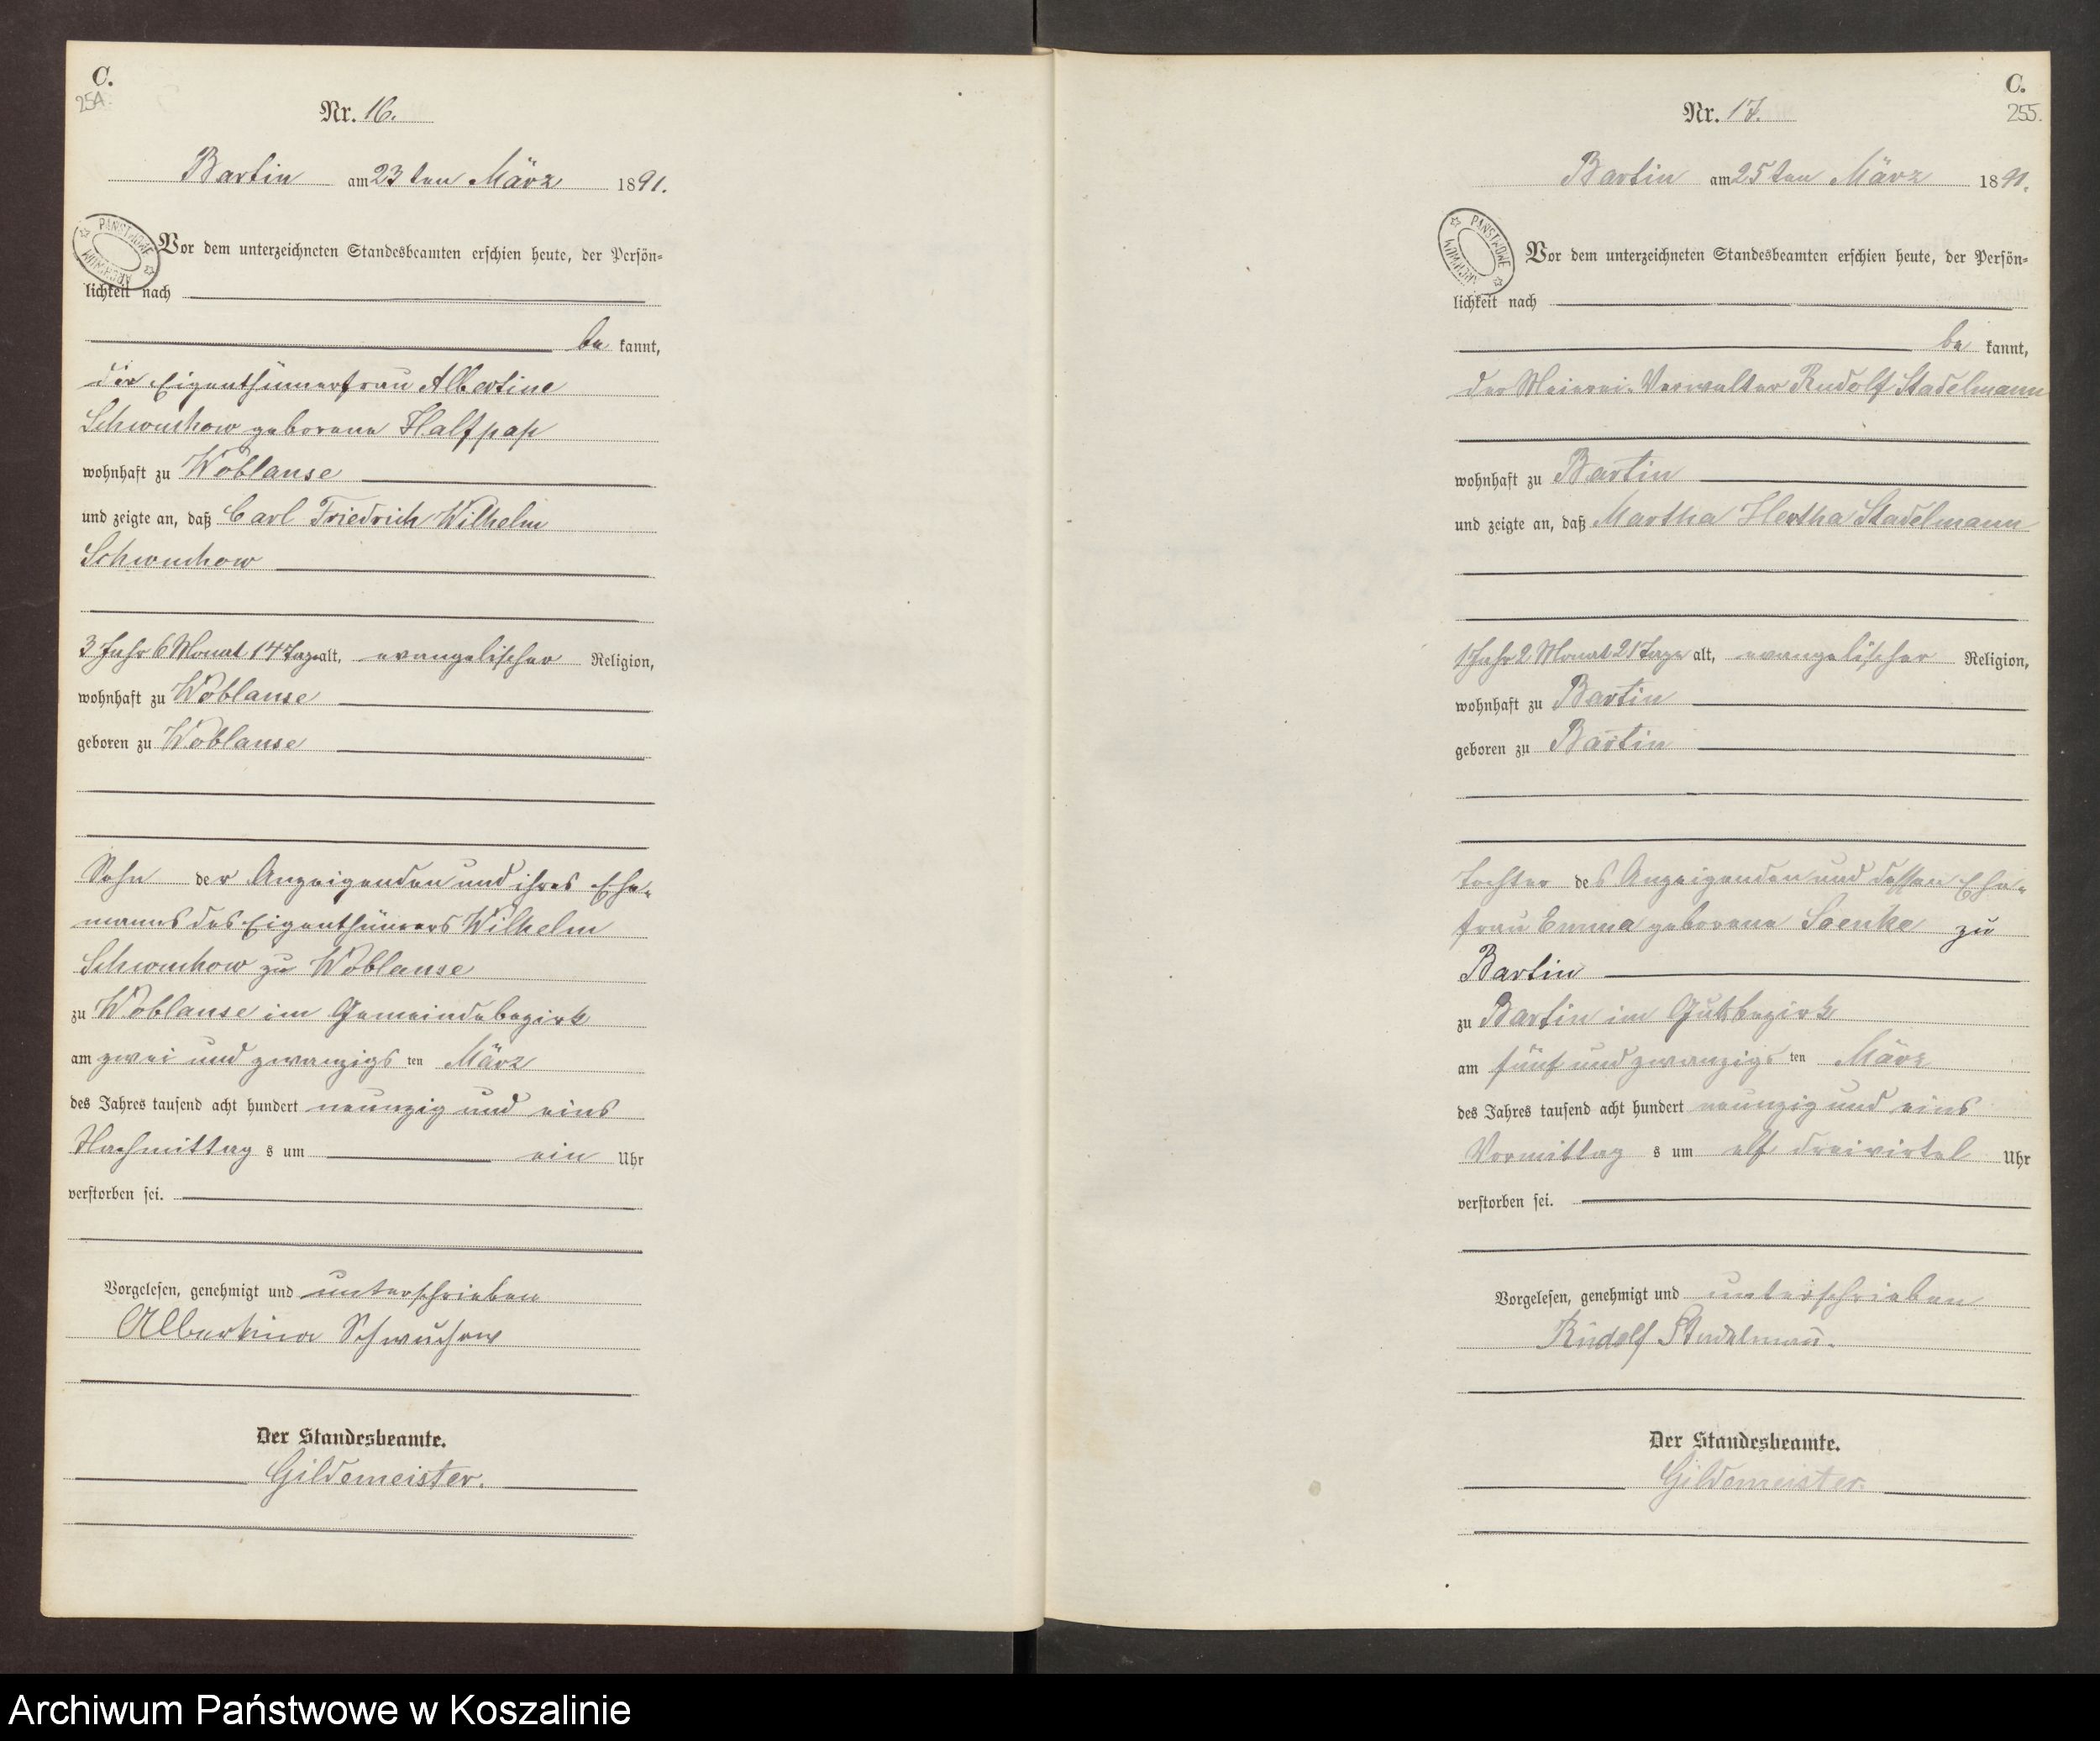 C.
254.
Nr. 16.
Bartin am 23ten März 1891.
PAŃSTWOWE ARCHIWUM
Vor dem unterzeichneten Standesbeamten erschien heute, der Persön-
lichkeit nach
be kannt,
die Eigenthümerfrau Albertine
Schwuchow geborene Halfpap
wohnhaft zu Woblanse
und zeigte an, daß Carl Friedrich Wilhelm
Schwuchow
3 Jahr 6 Monat 14 Tage alt, evangelischer Religion,
wohnhaft zu Woblanse
geboren zu Woblanse
Sohn der Anzeigenden und ihres Ehe-
manns des Eigenthümers Wilhelm
Schwuchow zu Woblanse
zu Woblanse im Gemeindebezirk
am zwei und zwanzigs ten März
des Jahres tausend acht hundert neunzig und eins
Nachmittag s um ein Uhr
verstorben sei.
Vorgelesen, genehmigt und unterschrieben
Albertine Schwuchow
Der Standesbeamte.
Gildemeister.
C.
255.
Nr. 17.
Bartin am 25ten März 1891.
PAŃSTWOWE ARCHIWUM
Vor dem unterzeichneten Standesbeamten erschien heute, der Persön-
lichkeit nach
be kannt,
der Meierei-Verwalter Rudolf Stadelmann
wohnhaft zu Bartin
und zeigte an, daß Martha Hertha Stadelmann
1 Jahr 2 Monat 21 Tage alt, evangelischer Religion,
wohnhaft zu Bartin
geboren zu Bartin
Tochter des Anzeigenden und dessen Ehe-
frau Emma geborene Soenke zu
Bartin
zu Bartin im Gutsbezirk
am fünf und zwanzigs ten März
des Jahres tausend acht hundert neunzig und eins
Vormittag s um elf dreivirtel Uhr
verstorben sei.
Vorgelesen, genehmigt und unterschrieben
Rudolf Stadelmann.
Der Standesbeamte.
Gildemeister.
Archiwum Państwowe w Koszalinie